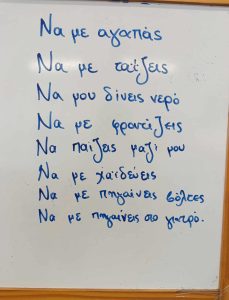 Να με αγαπάς
Να με ταΐζεις
Να μου δίνεις νερό
Να με φροντίζεις
Να παίζεις μαζί μου
Να με χαϊδεύεις
Να με πηγαίνεις βόλτες
Να με πηγαίνεις στο γιατρό.